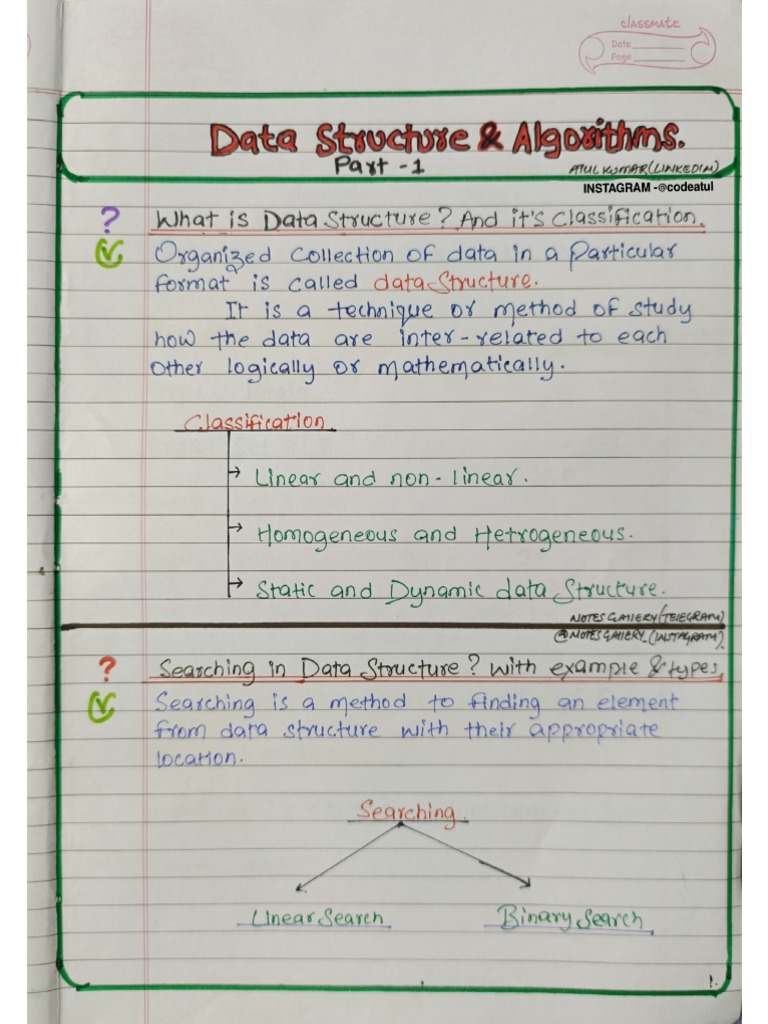 classmate
Date
Page
Data Structure & Algorithms.
Part - 1
ATUL KUMAR (LINKEDIN)
INSTAGRAM -@codeatul
? What is Data Structure? And it's Classification.
Organized collection of data in a particular
format is called data Structure.
It is a technique or method of study
how the data are inter-related to each
other logically or mathematically.
Classification
→ Linear and non-linear.
→ Homogeneous and Hetrogeneous.
→ Static and Dynamic data Structure.
NOTES GALLERY (TELEGRAM)
@NOTESGALLERY_(INSTAGRAM)
? Searching in Data Structure? with example & types.
Searching is a method to finding an element
from data structure with their appropriate
location.
Searching.
Linear Search Binary Search
1.